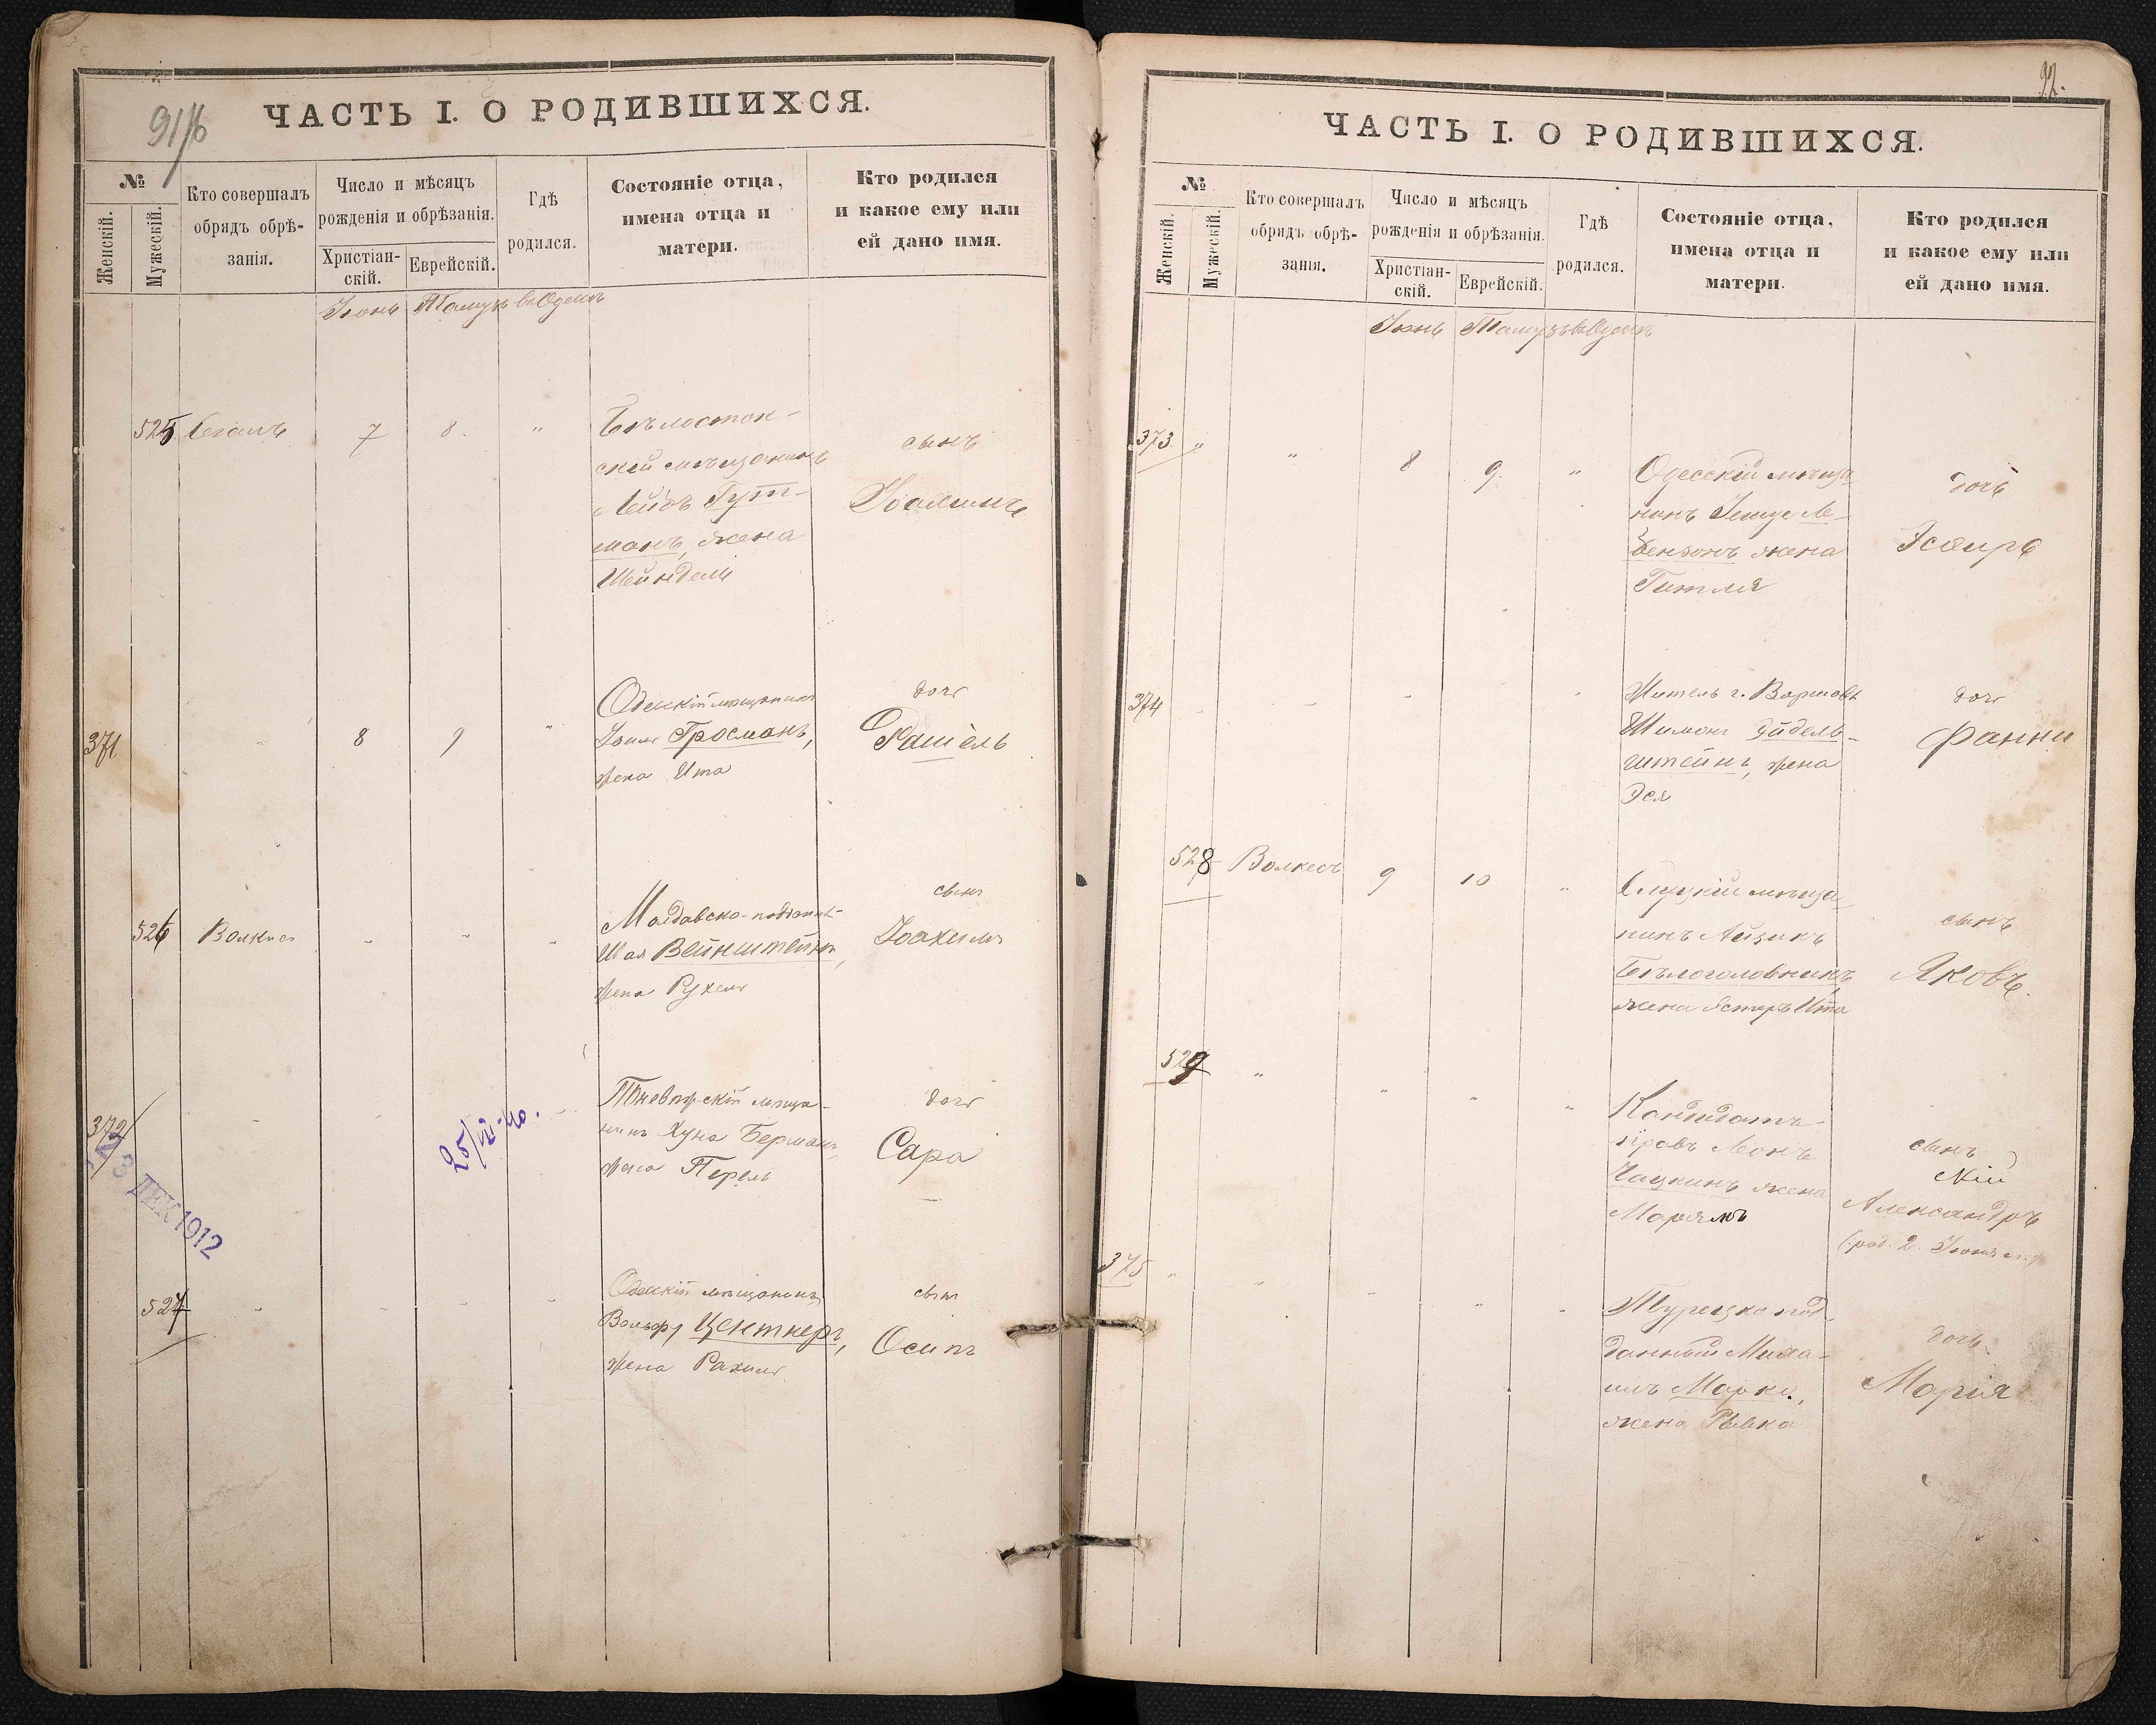 91/б
ЧАСТЬ I. О РОДИВШИХСЯ.
№
Женскій.
Мужескій.
Кто совершалъ
обрядъ обрѣ-
занія.
Число и мѣсяцъ
рожденія и обрѣзанія.
Христіан-
скій.
Еврейскій.
Гдѣ
родился.
Состояніе отца,
имена отца и
матери.
Кто родился
и какое ему или
ей дано имя.
Іюнь Тамузъ въ Одессѣ
525 7 8. "
Бѣлосток-
скій мѣщанинъ
Лейбъ Гут-
манъ, жена
Шейндель
сынъ
371 8 9
Одесскій мѣщанинъ
Гросманъ,
жена Ита
дочь
Рашель
526 Волкесъ
Молдавско-поддан.
Шая Вейнштейнъ,
жена Рухель
сынъ
Іоахимъ
372
23 ДЕК 1912
25/VII-40.
мѣща-
нинъ Хуна Берманъ,
жена Перель
дочь
Сара
527
Одесскій мѣщанинъ
Вольфъ Центнеръ,
жена Рахиль
сынъ
Осипъ
92.
ЧАСТЬ I. О РОДИВШИХСЯ.
№
Женскій.
Мужескій.
Кто совершалъ
обрядъ обрѣ-
занія.
Число и мѣсяцъ
рожденія и обрѣзанія.
Христіан-
скій.
Еврейскій.
Гдѣ
родился.
Состояніе отца,
имена отца и
матери.
Кто родился
и какое ему или
ей дано имя.
Іюнь Тамузъ въ Одессѣ
373 " " 8 9. "
Одесскій мѣща-
нинъ Ле-
бензонъ жена
Гитля
дочь
374
Житель г. Варшавы
Шимонъ Эйдель-
штейнъ, жена
Эся
дочь
Фанни
528 Волкесъ 9 10 "
Слуцкій мѣща-
нинъ Айзикъ
Бѣлоголовникъ,
жена Эстеръ Ита
сынъ
Яковъ.
529 " " " "
Кандидатъ
правъ Леонъ
Чацкинъ жена
Маріямъ
сынъ
Александръ
(род. 2. Іюня
375 " " " "
Турецко под-
данный Миха-
илъ
жена Ривка
дочь
Марія